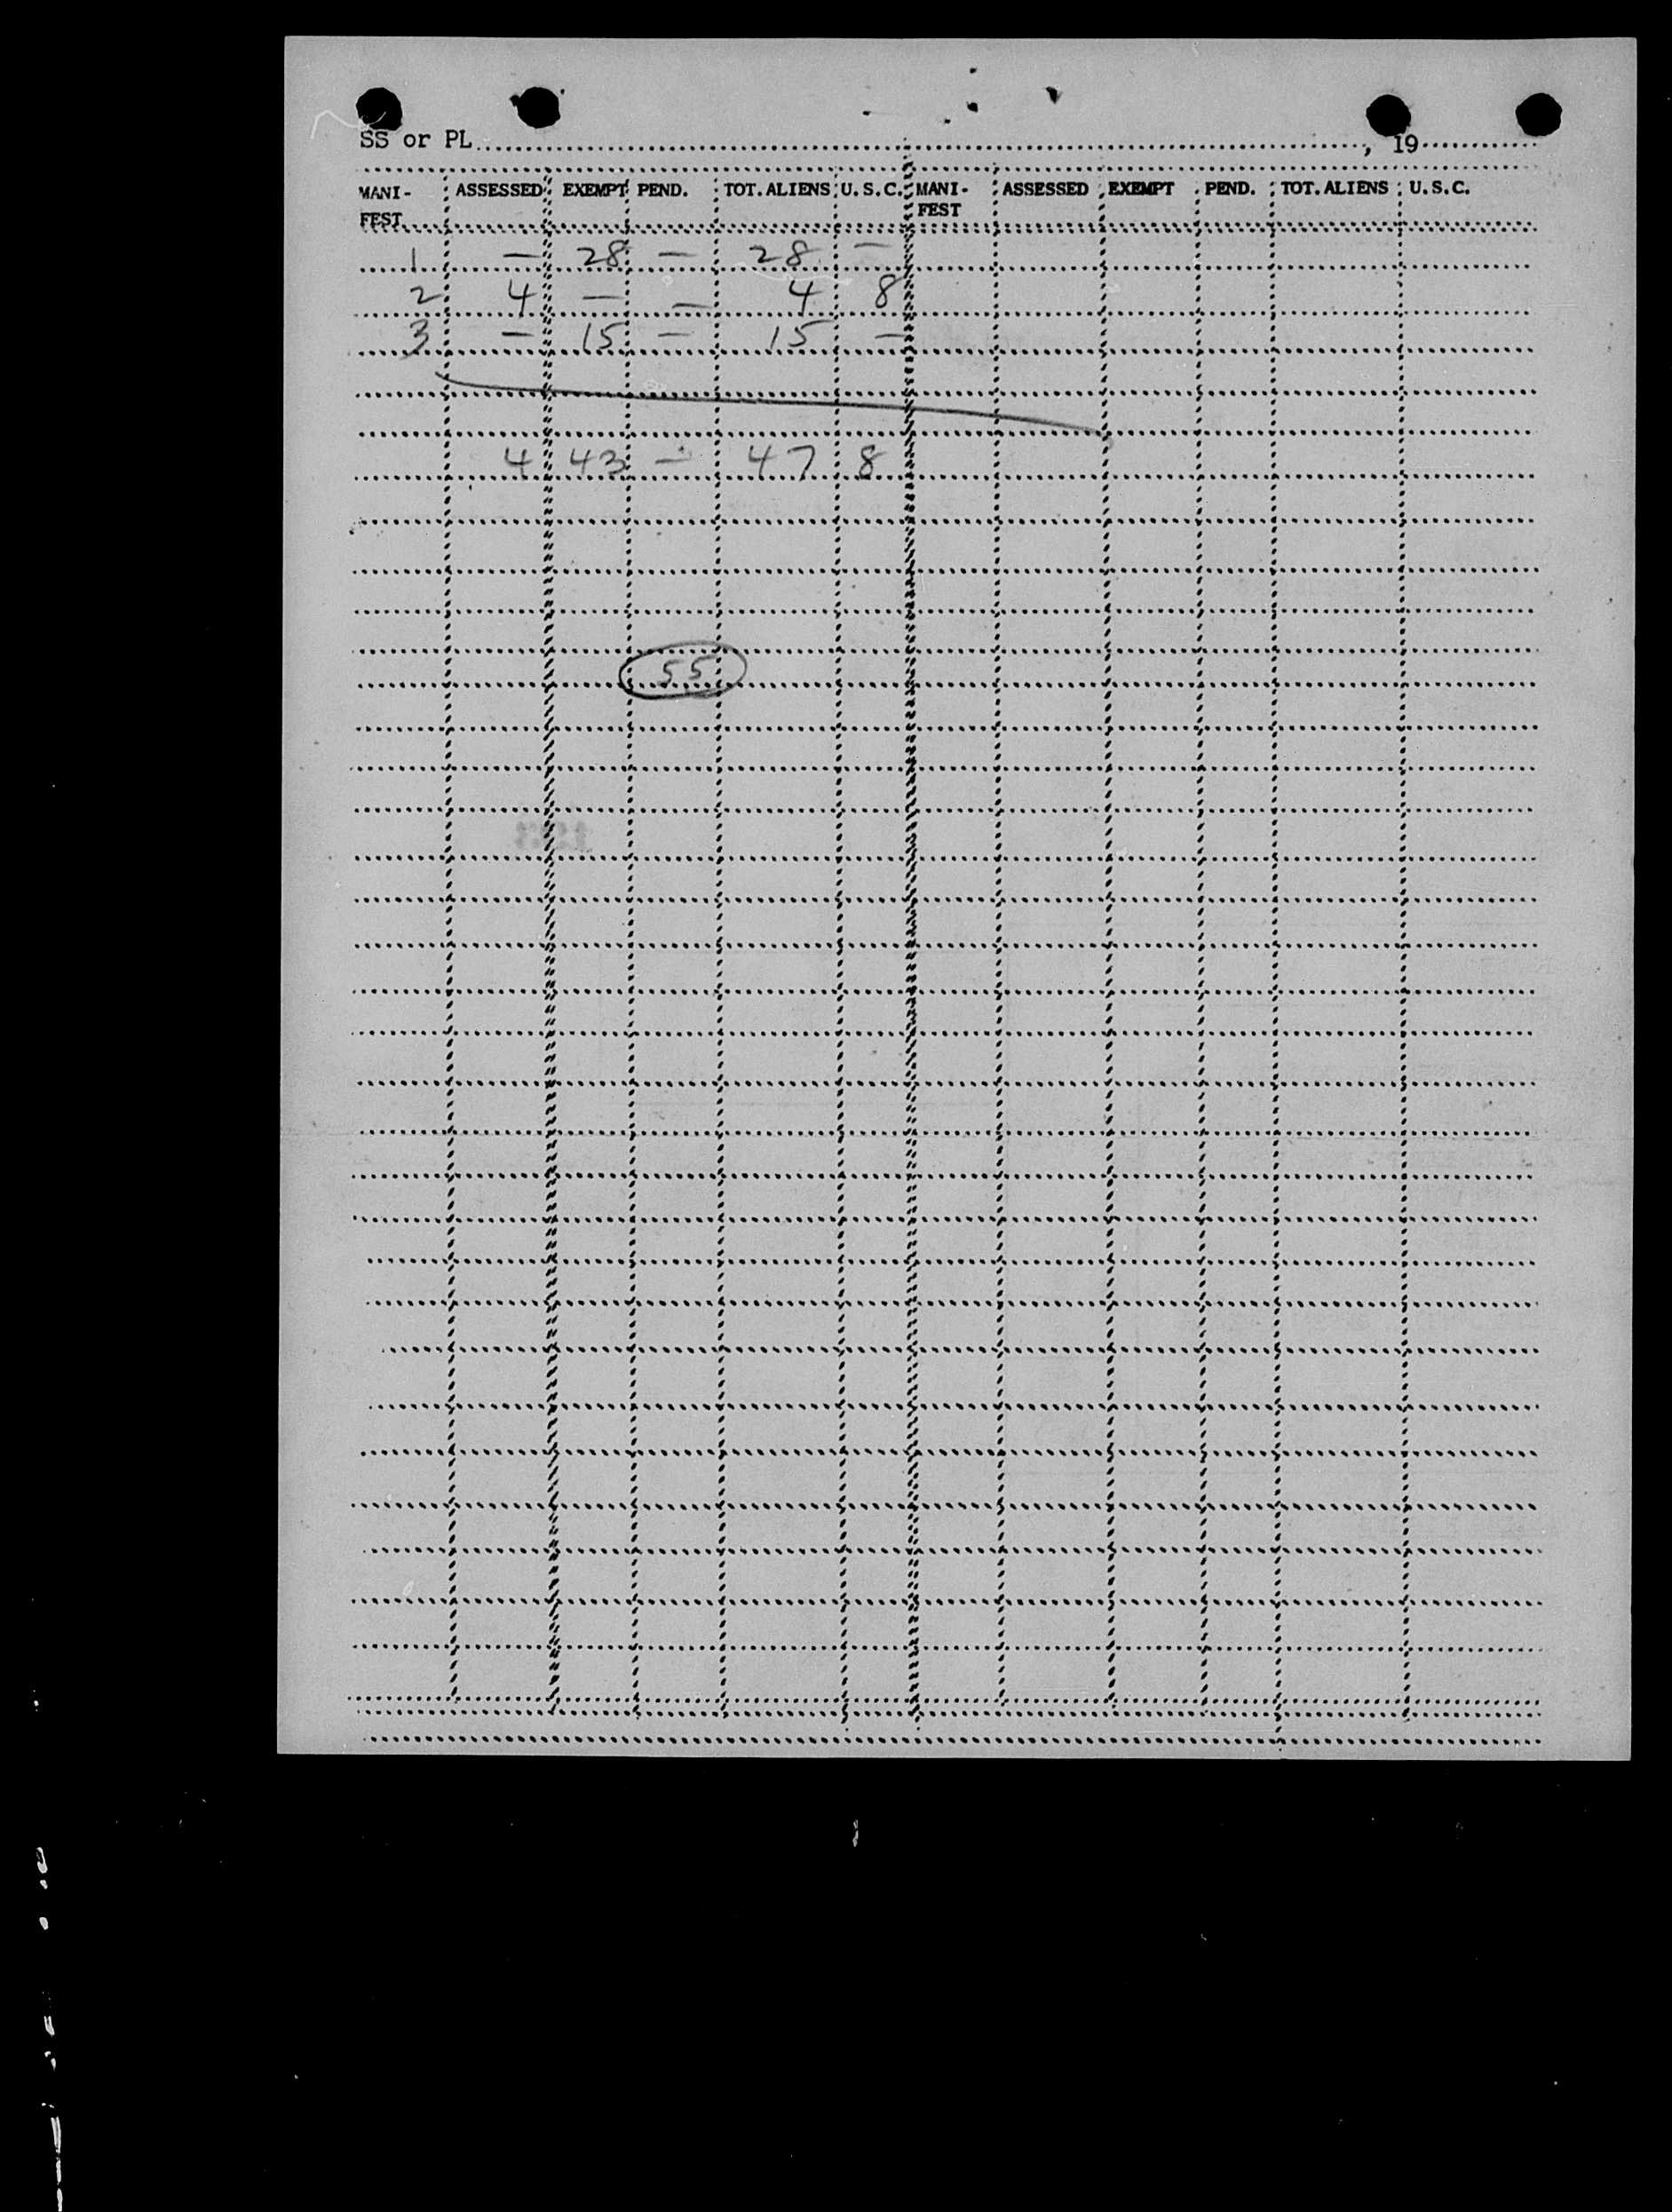 SS or PL , 19
MANI-FEST ASSESSED EXEMPT PEND. TOT. ALIENS U.S.C. MANI-FEST ASSESSED EXEMPT PEND. TOT. ALIENS U.S.C.
1 — 28 — 28 —
2 4 — — 4 8
3 — 15 — 15 —
4 43 — 47 8
55